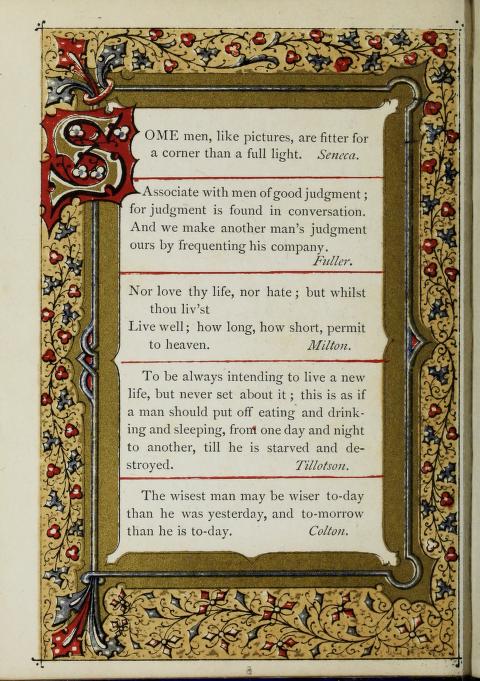 SOME men, like pictures, are fitter for
a corner than a full light. Seneca.
Associate with men of good judgment ;
for judgment is found in conversation.
And we make another man's judgment
ours by frequenting his company.
Fuller.
Nor love thy life, nor hate ; but whilst
thou liv'st
Live well ; how long, how short, permit
to heaven. Milton.
To be always intending to live a new
life, but never set about it ; this is as if
a man should put off eating and drink-
ing and sleeping, from one day and night
to another, till he is starved and de-
stroyed. Tillotson.
The wisest man may be wiser to-day
than he was yesterday, and to-morrow
than he is to-day. Colton.